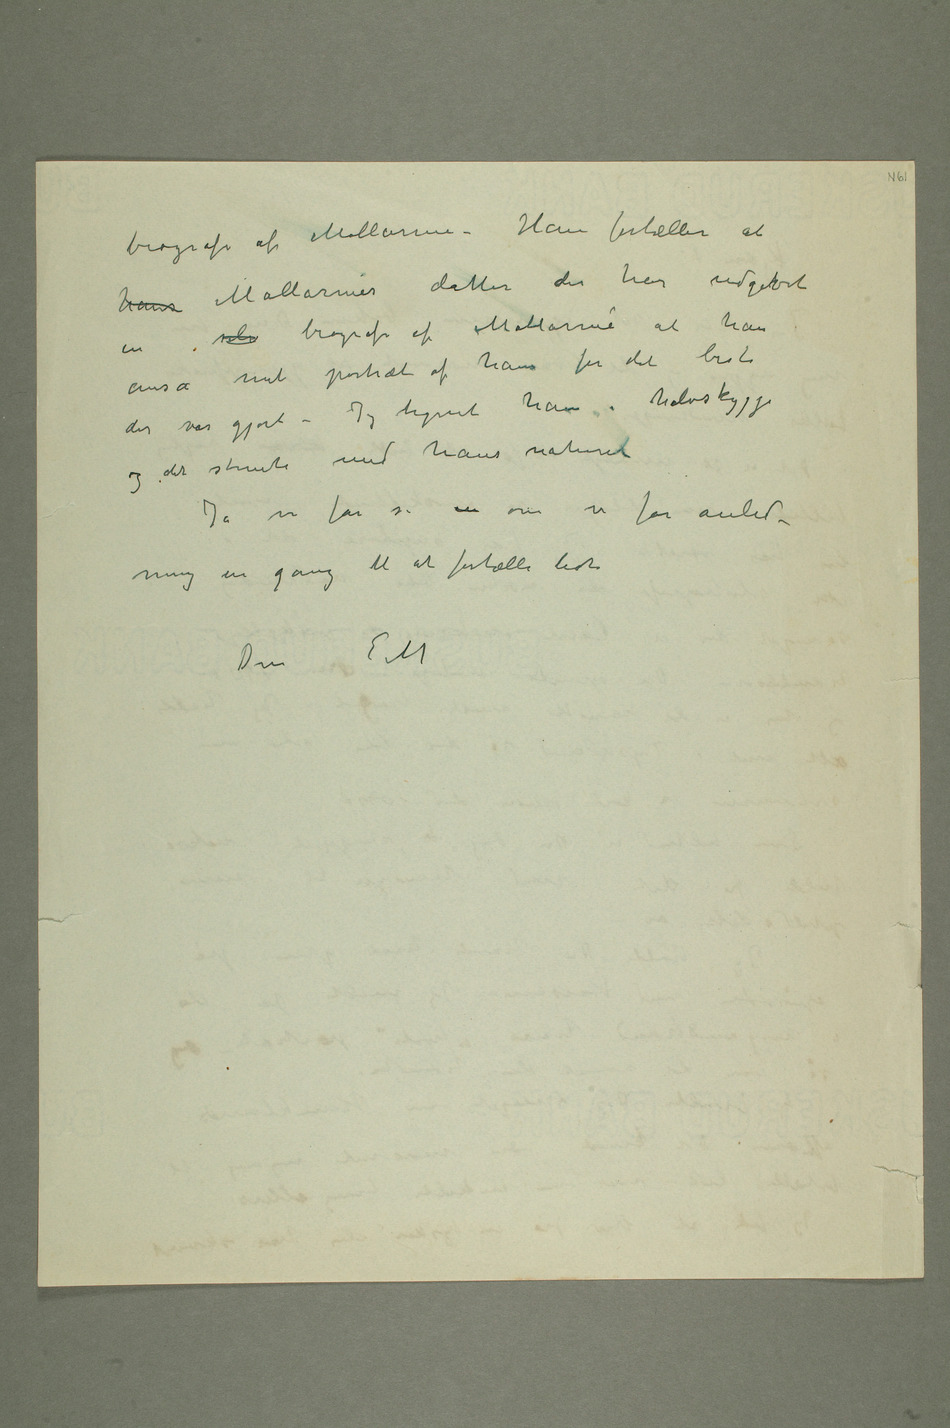 N61
biografi af Mallarmé – Han fortæller at
hans Mallarmés datter der har udgivet
en selv biografi af Mallarmé at han
anså mit portræt af ham for det beste
der var gjort – Jeg tegnet ham i halvskygge
og det stemte med hans naturel
Ja vi får se en om vi får anled-
ning en gang til at fortælle lidt
Din EM